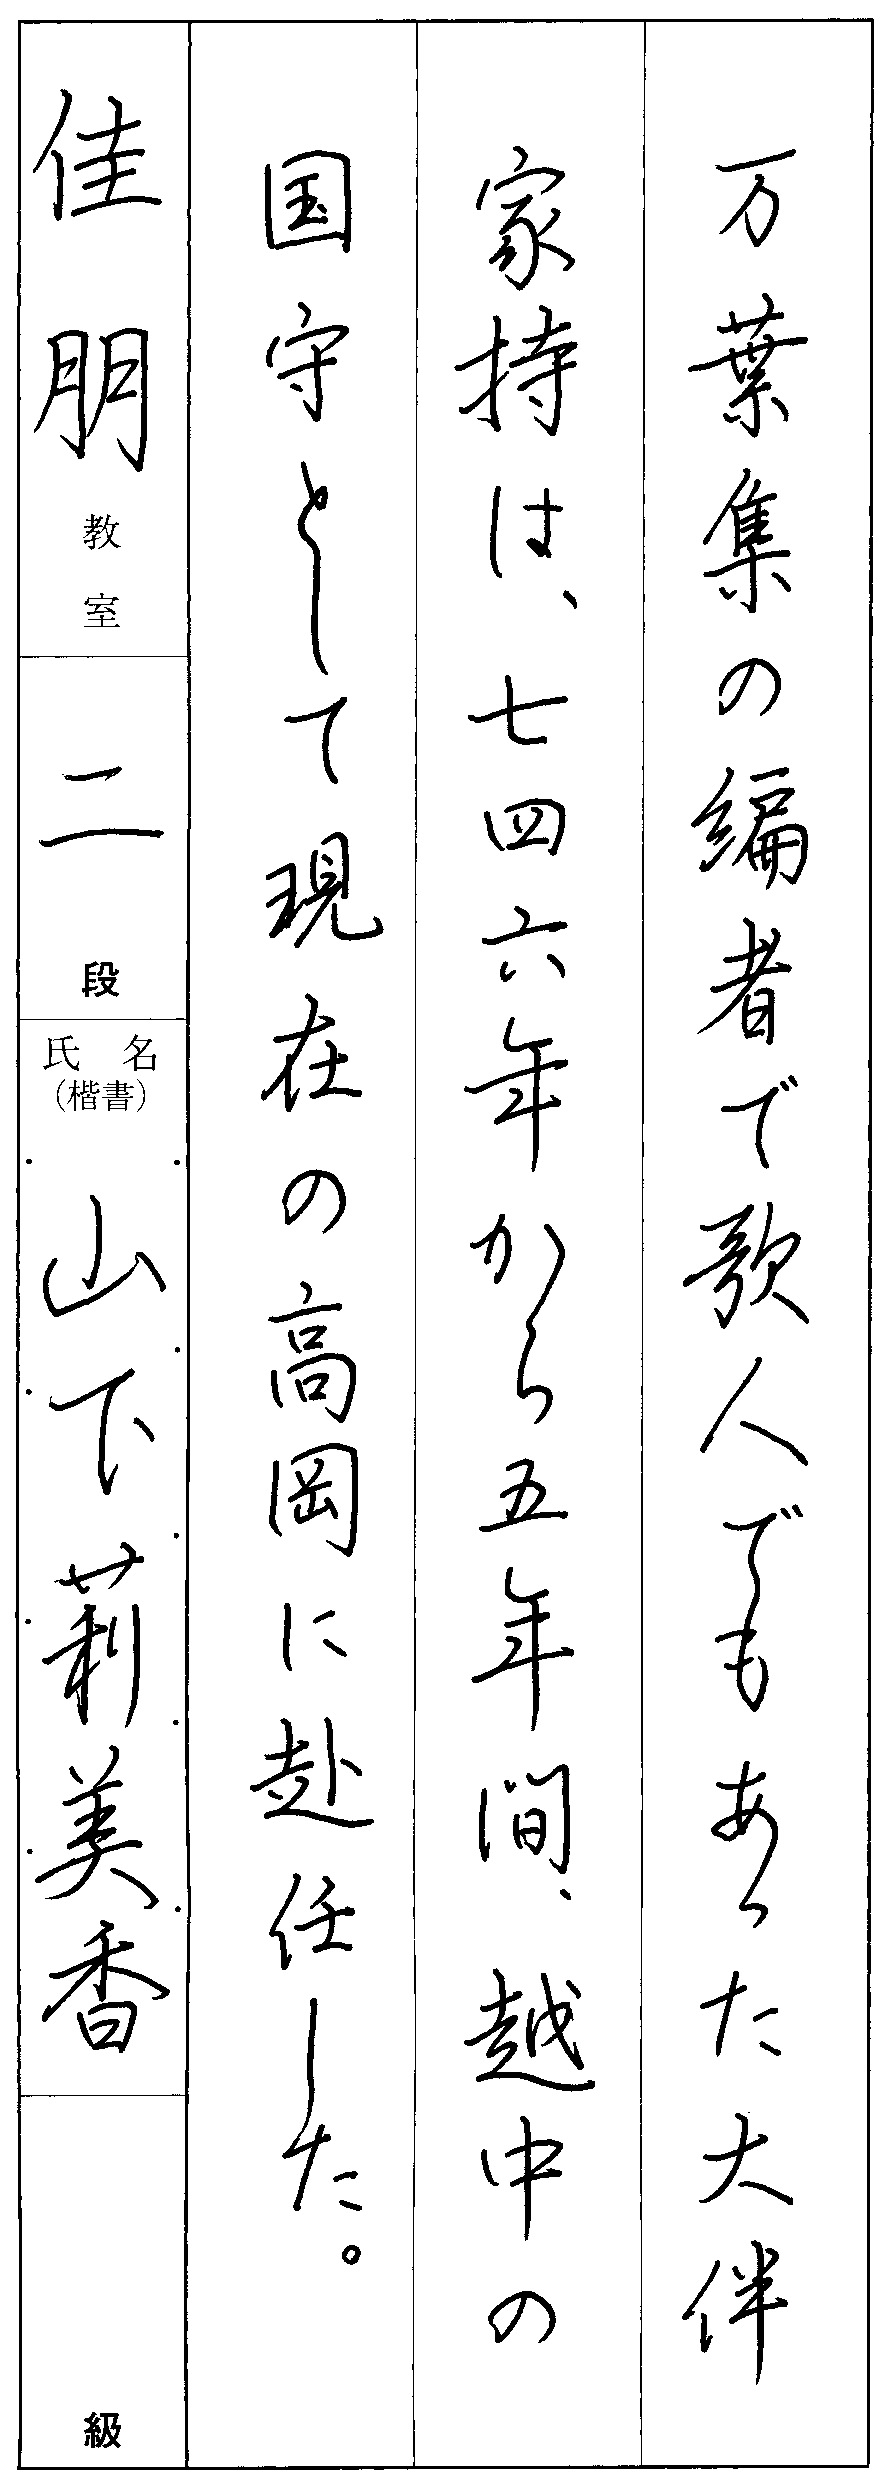 万葉集の編者で歌人でもあった大伴
家持は、七四六年から五年間、越中の
国守として現在の高岡に赴任した。
佳朋教室
二段
氏名
(楷書)
山下莉美香
級